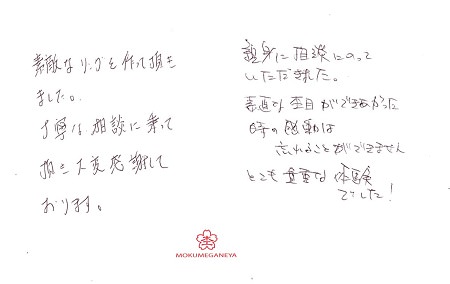 素敵なリングを作って頂き
ました。
丁寧な相談に乗って
頂き大変感謝して
おります。
親身に相談にのって
いただきました。
素直な杢目ができあがった
時の感動は
忘れることができません
とても貴重な体験
でした!
MOKUMEGANEYA